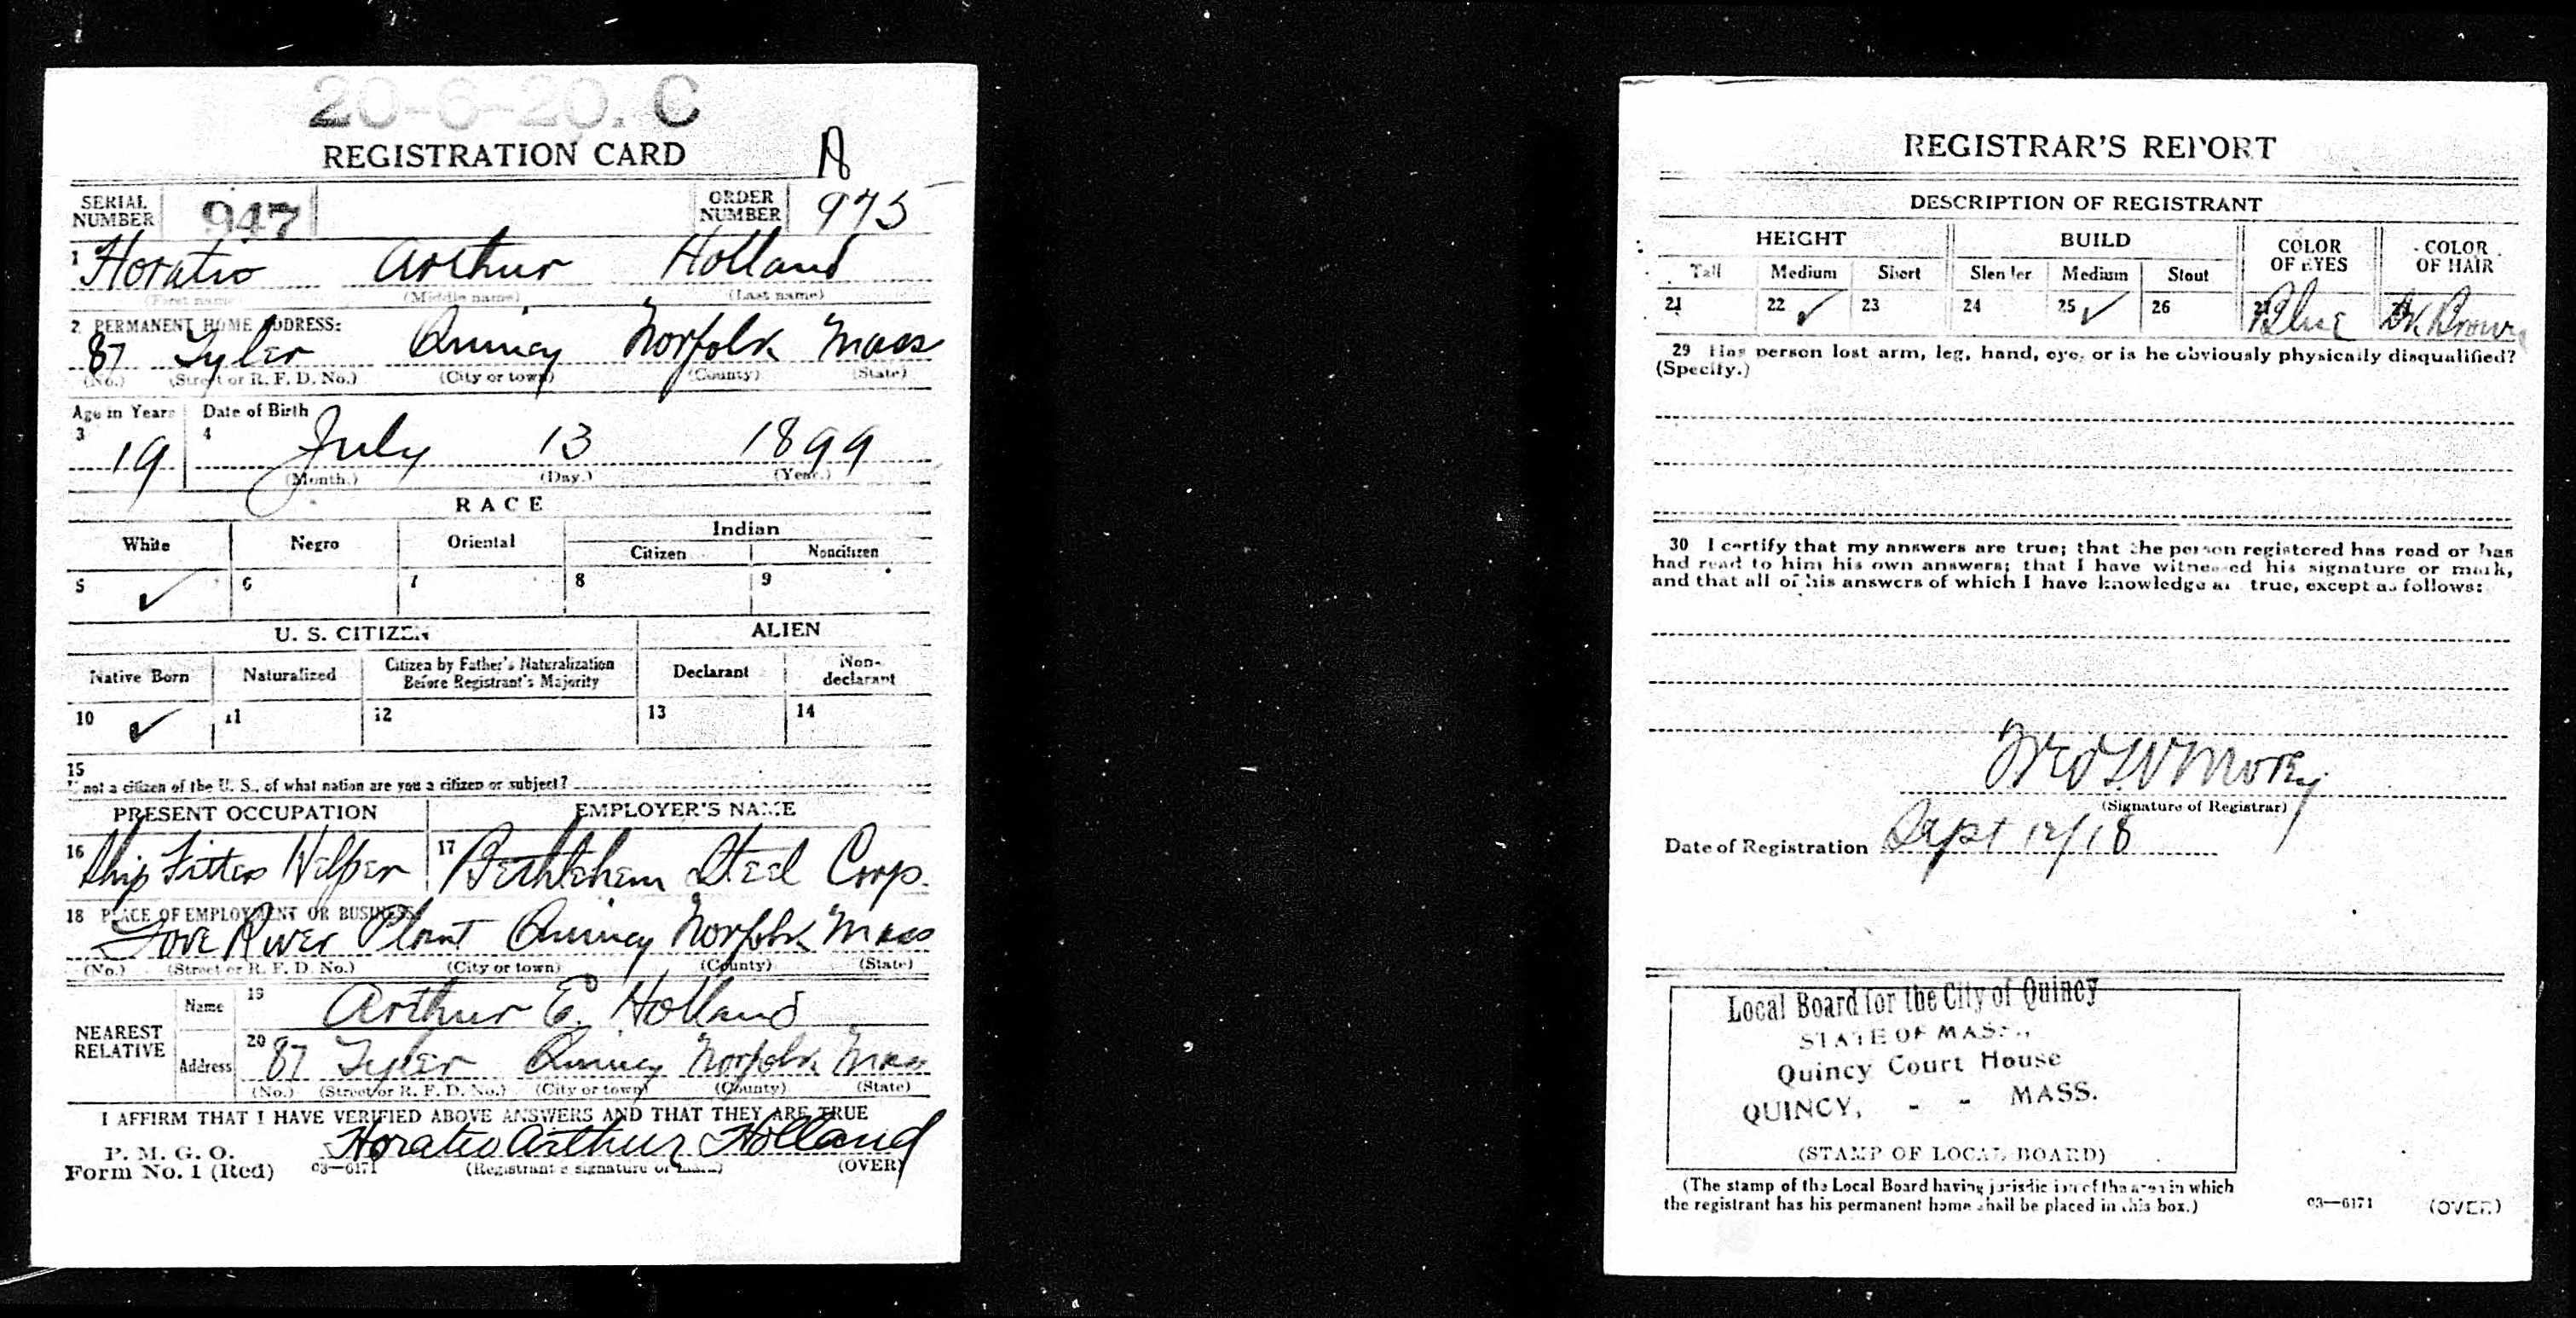 20-6-20. C
REGISTRATION CARD A
SERIAL NUMBER 947 ORDER NUMBER 975
1 Horatio Arthur Holland
(First name) (Middle name) (Last name)
2 PERMANENT HOME ADDRESS:
87 Tyler Quincy Norfolk Mass
(No.) (Street or R. F. D. No.) (City or town) (County) (State)
Age in Years Date of Birth
3 19 4 July 13 1899
(Month.) (Day.) (Year.)
RACE
White Negro Oriental Indian
Citizen Noncitizen
5 ✓ 6 7 8 9
U. S. CITIZEN ALIEN
Native Born Naturalized Citizen by Father's Naturalization Before Registrant's Majority Declarant Non-declarant
10 ✓ 11 12 13 14
15
If not a citizen of the U. S., of what nation are you a citizen or subject?
PRESENT OCCUPATION EMPLOYER'S NAME
16 Ship Fitters Helper 17 Bethlehem Steel Corp.
18 PLACE OF EMPLOYMENT OR BUSINESS:
Fore River Plant Quincy Norfolk Mass
(No.) (Street or R. F. D. No.) (City or town) (County) (State)
NEAREST RELATIVE Name 19 Arthur E. Holland
Address 20 87 Tyler Quincy Norfolk Mass
(No.) (Street or R. F. D. No.) (City or town) (County) (State)
I AFFIRM THAT I HAVE VERIFIED ABOVE ANSWERS AND THAT THEY ARE TRUE
P. M. G. O.
Form No. 1 (Red) 03—6171 Horatio Arthur Holland
(Registrant's signature or mark) (OVER)
REGISTRAR'S REPORT
DESCRIPTION OF REGISTRANT
HEIGHT BUILD COLOR OF EYES COLOR OF HAIR
Tall Medium Short Slender Medium Stout
21 22 ✓ 23 24 25 ✓ 26 27 Blue 28 Dk Brown
29 Has person lost arm, leg, hand, eye, or is he obviously physically disqualified?
(Specify.)
30 I certify that my answers are true; that the person registered has read or has
had read to him his own answers; that I have witnessed his signature or mark,
and that all of his answers of which I have knowledge are true, except as follows:
(Signature of Registrar)
Date of Registration Sept 12/18
Local Board for the City of Quincy
STATE OF MASS.,
Quincy Court House
QUINCY, - - MASS.
(STAMP OF LOCAL BOARD)
(The stamp of the Local Board having jurisdiction of the area in which
the registrant has his permanent home shall be placed in this box.)
03—6171 (OVER)